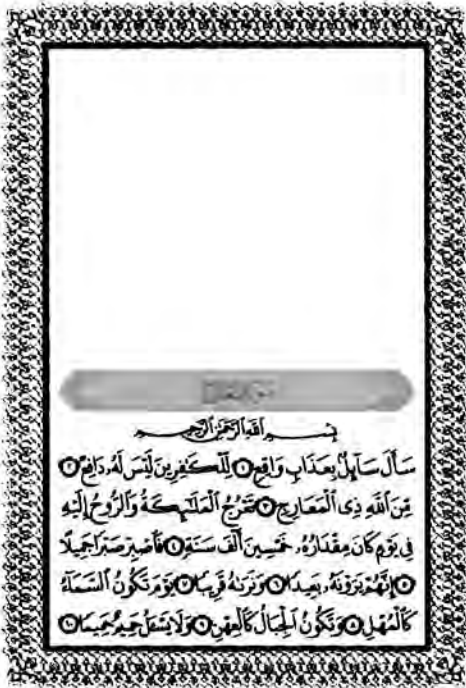 سورة المعارج
بِسْمِ ٱللَّهِ ٱلرَّحْمَٰنِ ٱلرَّحِيمِ
سَأَلَ سَآئِلٌۢ بِعَذَابٍ وَاقِعٍ ١ لِّلْكَٰفِرِينَ لَيْسَ لَهُۥ دَافِعٌ ٢
مِّنَ ٱللَّهِ ذِى ٱلْمَعَارِجِ ٣ تَعْرُجُ ٱلْمَلَٰٓئِكَةُ وَٱلرُّوحُ إِلَيْهِ
فِى يَوْمٍ كَانَ مِقْدَارُهُۥ خَمْسِينَ أَلْفَ سَنَةٍ ٤ فَٱصْبِرْ صَبْرًا جَمِيلًا
٥ إِنَّهُمْ يَرَوْنَهُۥ بَعِيدًا ٦ وَنَرَىٰهُ قَرِيبًا ٧ يَوْمَ تَكُونُ ٱلسَّمَآءُ
كَٱلْمُهْلِ ٨ وَتَكُونُ ٱلْجِبَالُ كَٱلْعِهْنِ ٩ وَلَا يَسْـَٔلُ حَمِيمٌ حَمِيمًا ١٠